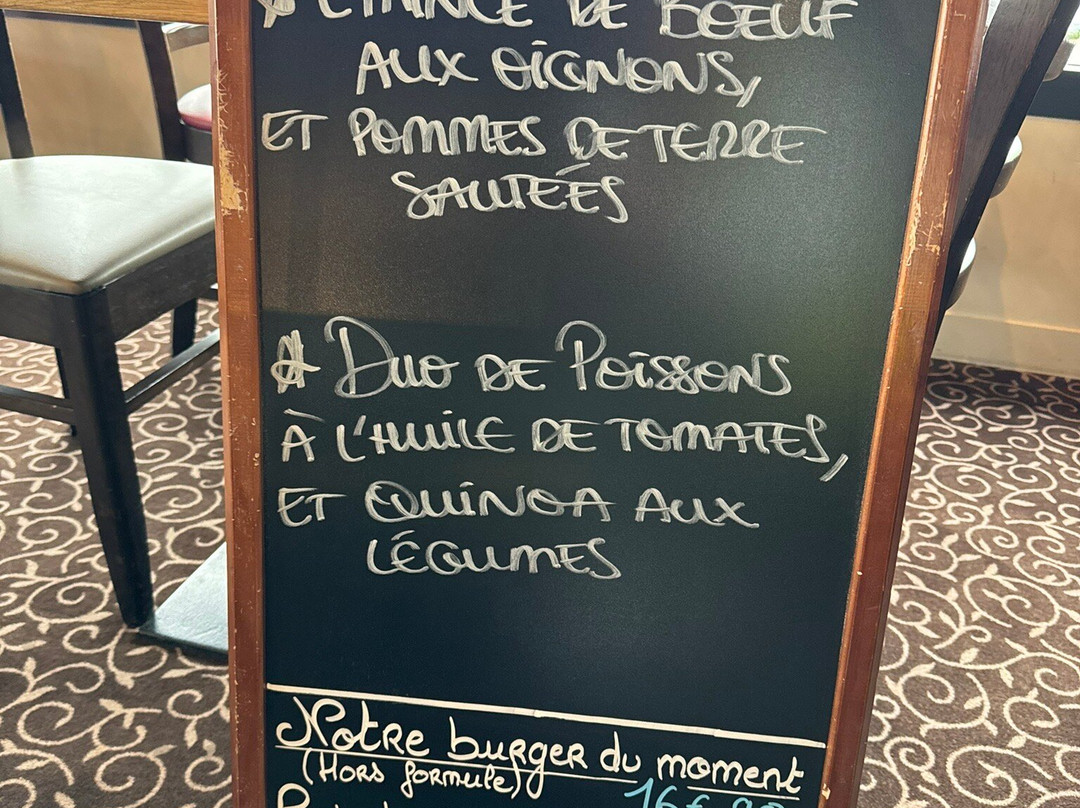 * ÉMINCÉ DE BOEUF
AUX OIGNONS,
ET POMMES DE TERRE
SAUTÉES
* DUO DE POISSONS
À L'HUILE DE TOMATES,
ET QUINOA AUX
LÉGUMES
Notre burger du moment
(Hors formule)